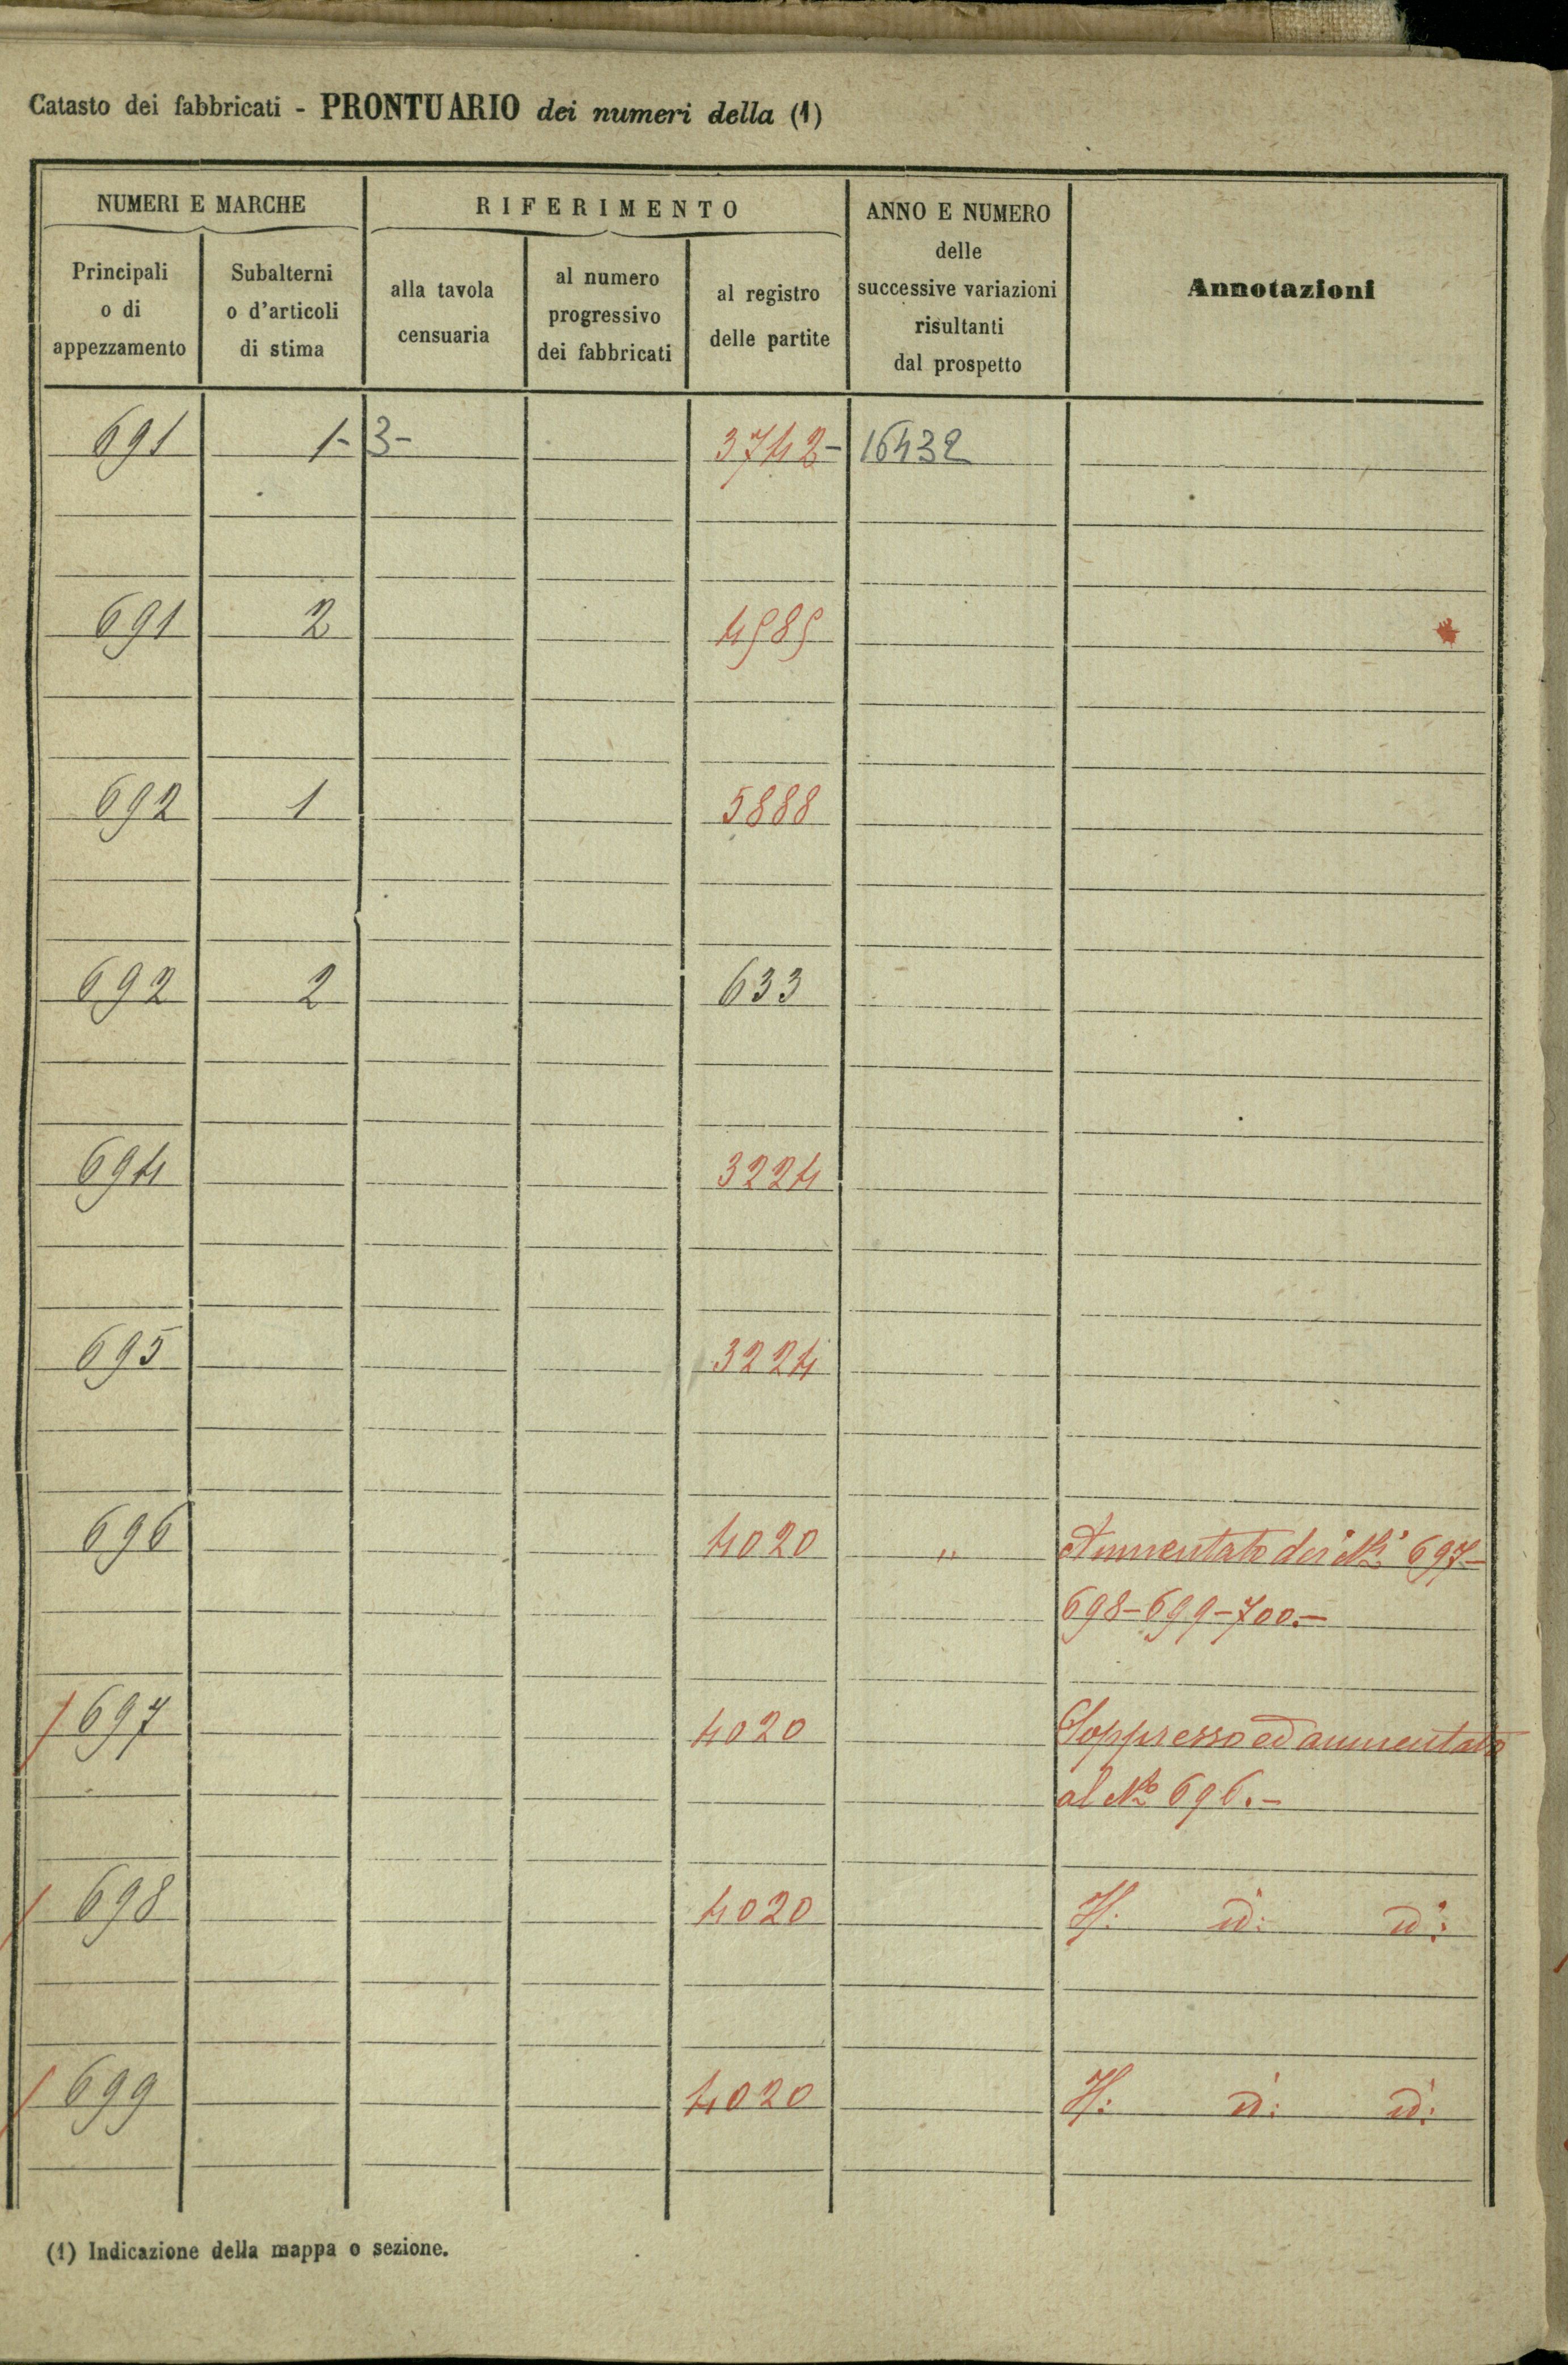 Catasto dei fabbricati - PRONTUARIO dei numeri della (1)
NUMERI E MARCHE
RIFERIMENTO
ANNO E NUMERO
delle
successive variazioni
risultanti
dal prospetto
Annotazioni
Principali
o di
appezzamento
Subalterni
o d'articoli
di stima
alla tavola
censuaria
al numero
progressivo
dei fabbricati
al registro
delle partite
691 1- 3- 3742- 16432
691 2 4585
692 1 5888
692 2 633
694 3224
695 3224
696 4020 " Aumentato dei Ni 697-
698-699-700.-
697 4020 Soppresso ed aumentato
al No 696.-
698 4020 id: id:
699 4020 id: id:
(1) Indicazione della mappa o sezione.